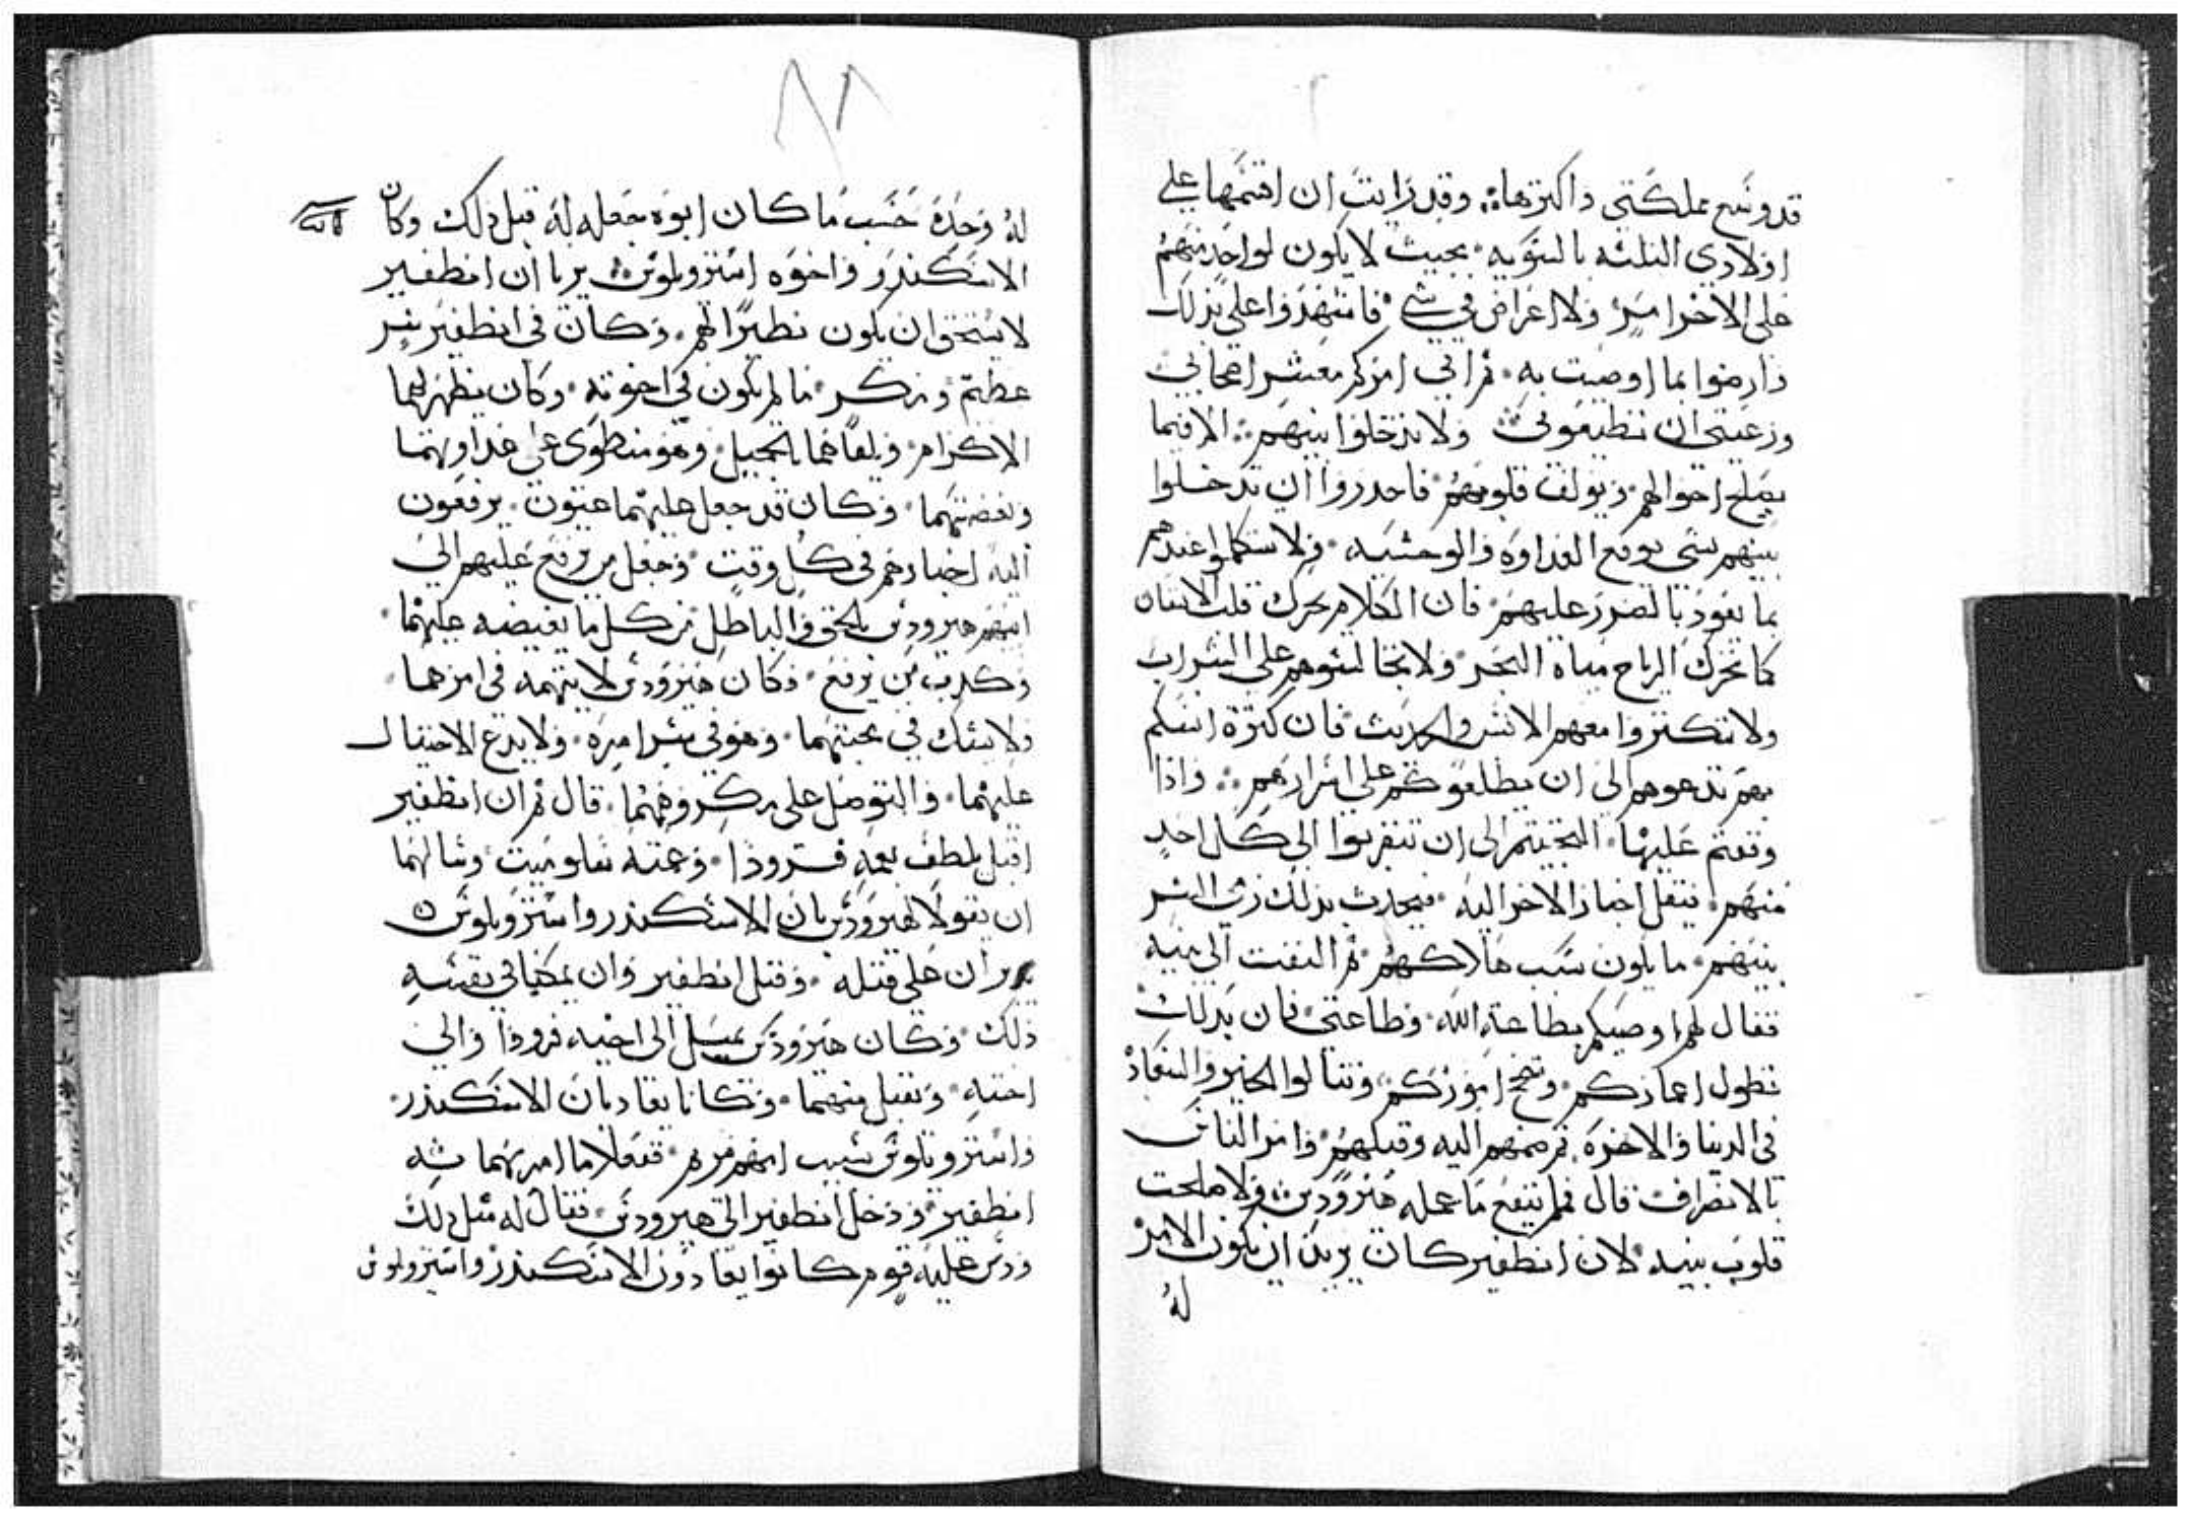 قد وسع مملكتي واكثرها وقد رايت ان اقسمها على
اولادي الثلثه بالسويه بحيث لا يكون لواحد منهم
على الاخر امر ولا اعراض في شي فاشهدوا على بذلك
وارضوا بما اوصيت به ثم اني امركم معشر اصحابي
ورعيتي ان تطيعوني ولا تدخلوا بينهم الا فيما
يصلح احوالهم ويولف قلوبهم فاحدروا ان تدخلوا
بينهم بشي يوقع العداوه والوحشيه ولا تتكلموا عندهم
بما يعود بالضرر عليهم فان الكلام يحرك قلب الانسان
كما تحرك الرياح مياه البحر ولا تجالسوهم على الشراب
ولا تتكتروا معهم الانس والحديث فان كترة انسكم
بهم تدعوهم الى ان يطلعوكم على اسرارهم واذا
وقفتم عليها التجيتم الى ان تتقربوا الى كل احد
منهم فتنقل اخبار الاخر اليه فيحدث بذلك من الشر
بينهم ما يكون سبب هلاكهم ثم التفت الى بنيه
فقال لهم اوصيكم بطاعة الله وطاعتي فان بذلك
تطول اعماركم وتنجح اموركم وتنالوا الخير والسعاد
في الدنيا والاخره ثم ضمهم اليه وقبلهم وامر الناس
بالانصراف قال فلم ينفع ما عمله هيرودس ولا صلحت
قلوب بنيه لان انطفير كان يريد ان يكون الامر
له
٨٨
له وحده حسب ما كان ابوه جعله له قبل ذلك وكان
الاسكندر واخوه استروبلوس يريا ان انطفير
لا يستحق ان يكون نظيرا لهم وكان في انطفير شر
عظيم ومكر ما لم يكون في اخوته وكان يظهر لهما
الاكرام ويلقاهما بالجميل وهو منطوى على عداوتهما
وبغضتهما وكان قد جعل عليهما عيون يرفعون
اليه اخبارهم في كل وقت وجعل من يرفع عليهم الى
ابيهم هيرودس بالحق والباطل من كل ما يغيضه عليهما
وكدب من يرفع وكان هيرودس لا يتهمه في امرهما
ولا يشك في محبتهما وهو في شر امره ولا يدع الاحتيال
عليهما والتوصل على مكروههما قال ثم ان انطفير
اقبل يلطف بعمه فرودا وعمته سلوميت وسالهما
ان يقولا لهيرودس بان الاسكندر واستروبلوس
يريدان على قتله وقتل انطفير وان يمضيا في نفسه
ذلك وكان هيرودس يميل الى اخيه فرودا والى
اخته ويقبل منهما وكانا يعاديان الاسكندر
واستروبلوس بسبب امهم مريم ففعلا ما امرهما به
انطفير ودخل انطفير الى هيرودس فقال له مثل ذلك
ودس عليه قوم كانوا يعادون الاسكندر واستروبلوس